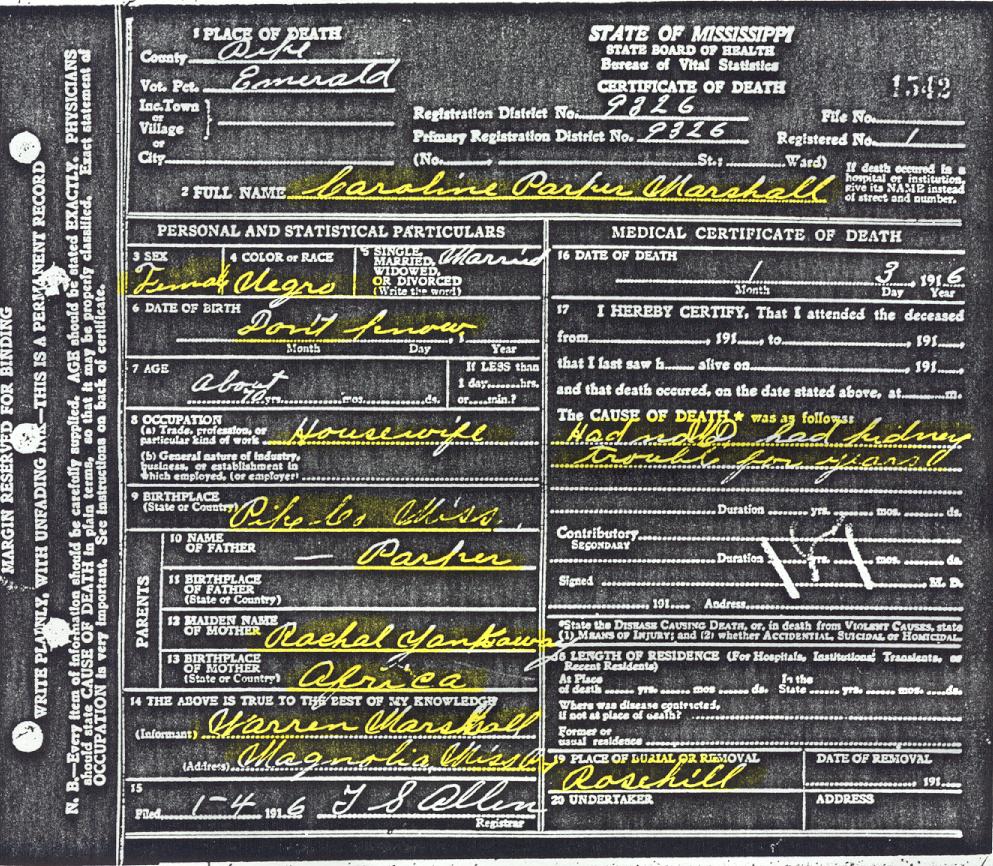 1 PLACE OF DEATH
County Pike
Vot. Pct. Emerald
Inc. Town
or
Village
or
City
STATE OF MISSISSIPPI
STATE BOARD OF HEALTH
Bureau of Vital Statistics
CERTIFICATE OF DEATH
1542
Registration District No. 9326
File No.
Primary Registration District No. 9326
Registered No. 1
(No. St.; Ward)
If death occured in a
hospital or institution,
give its NAME instead
of street and number.
2 FULL NAME Caroline Parker Marshall
PERSONAL AND STATISTICAL PARTICULARS
3 SEX
Femal
4 COLOR or RACE
Negro
5 SINGLE,
MARRIED,
WIDOWED,
OR DIVORCED
(Write the word)
Married
6 DATE OF BIRTH
Don't know
Month Day Year
7 AGE
About
yrs. mos. ds.
If LESS than
1 day hrs.
or min.?
8 OCCUPATION
(a) Trade, profession, or
particular kind of work Housewife
(b) General nature of industry,
business, or establishment in
which employed, (or employer)
9 BIRTHPLACE
(State or Country) Pike Co Miss.
PARENTS
10 NAME
OF FATHER — Parker
11 BIRTHPLACE
OF FATHER
(State or Country)
12 MAIDEN NAME
OF MOTHER Rachal
13 BIRTHPLACE
OF MOTHER
(State or Country) Africa
14 THE ABOVE IS TRUE TO THE BEST OF MY KNOWLEDGE
(Informant) Warren Marshall
(Address) Magnolia Miss
15
Filed 1-4 1916 T S Allen
Registrar
MEDICAL CERTIFICATE OF DEATH
16 DATE OF DEATH
1 3 1916
Month Day Year
17 I HEREBY CERTIFY, That I attended the deceased
from , 191 , to , 191 ,
that I last saw h alive on , 191 ,
and that death occured, on the date stated above, at m.
The CAUSE OF DEATH* was as follows
Had no had kidney
trouble for years
Duration yrs. mos. ds.
Contributory
SECONDARY
Duration yrs. mos. ds.
Signed M. D.
191 Address
*State the DISEASE CAUSING DEATH, or, in death from VIOLENT CAUSES, state
(1) MEANS OF INJURY; and (2) whether ACCIDENTAL, SUICIDAL or HOMICIDAL.
18 LENGTH OF RESIDENCE (For Hospitals, Institutions, Transients, or
Recent Residents)
At Place
of death yrs. mos ds.
In the
State yrs. mos. ds.
Where was disease contracted,
if not at place of death?
Former or
usual residence
19 PLACE OF BURIAL OR REMOVAL
Rosehill
DATE OF REMOVAL
191
20 UNDERTAKER
ADDRESS
MARGIN RESERVED FOR BINDING
WRITE PLAINLY, WITH UNFADING INK—THIS IS A PERMANENT RECORD
N. B.—Every item of information should be carefully supplied. AGE should be stated EXACTLY. PHYSICIANS
should state CAUSE OF DEATH in plain terms, so that it may be properly classified. Exact statement of
OCCUPATION is very important. See instructions on back of certificate.